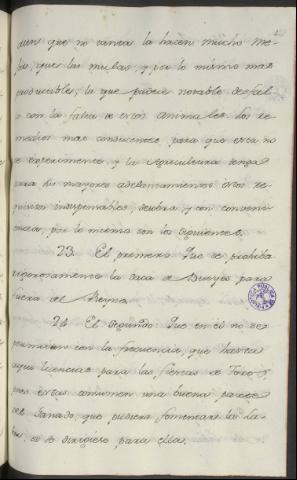 dicen que no cansa la hacen mucho me-
jor, que las mulas, y por lo mismo mas
producible; la que padece notable desfal-
co con la falta de estos animales. Los re-
medios mas conducentes para que esta no
se experimente, y la Agricultura tenga
para sus mayores adelantamientos estos re-
quisitos indispensables, y con conveni-
encia, por lo mismo son los siguientes.
23. El primero: Que se prohiba
rigorosamente la saca de Bueyes para
fuera del Reyno.
24. El segundo: Que en él no se
permitan con la frecuencia, que hasta
aqui licencias para las fiestas de Toros,
pues estas consumen una buena parte
del Ganado, que pudiera fomentar la La-
bor, si se dirigiese para ella.